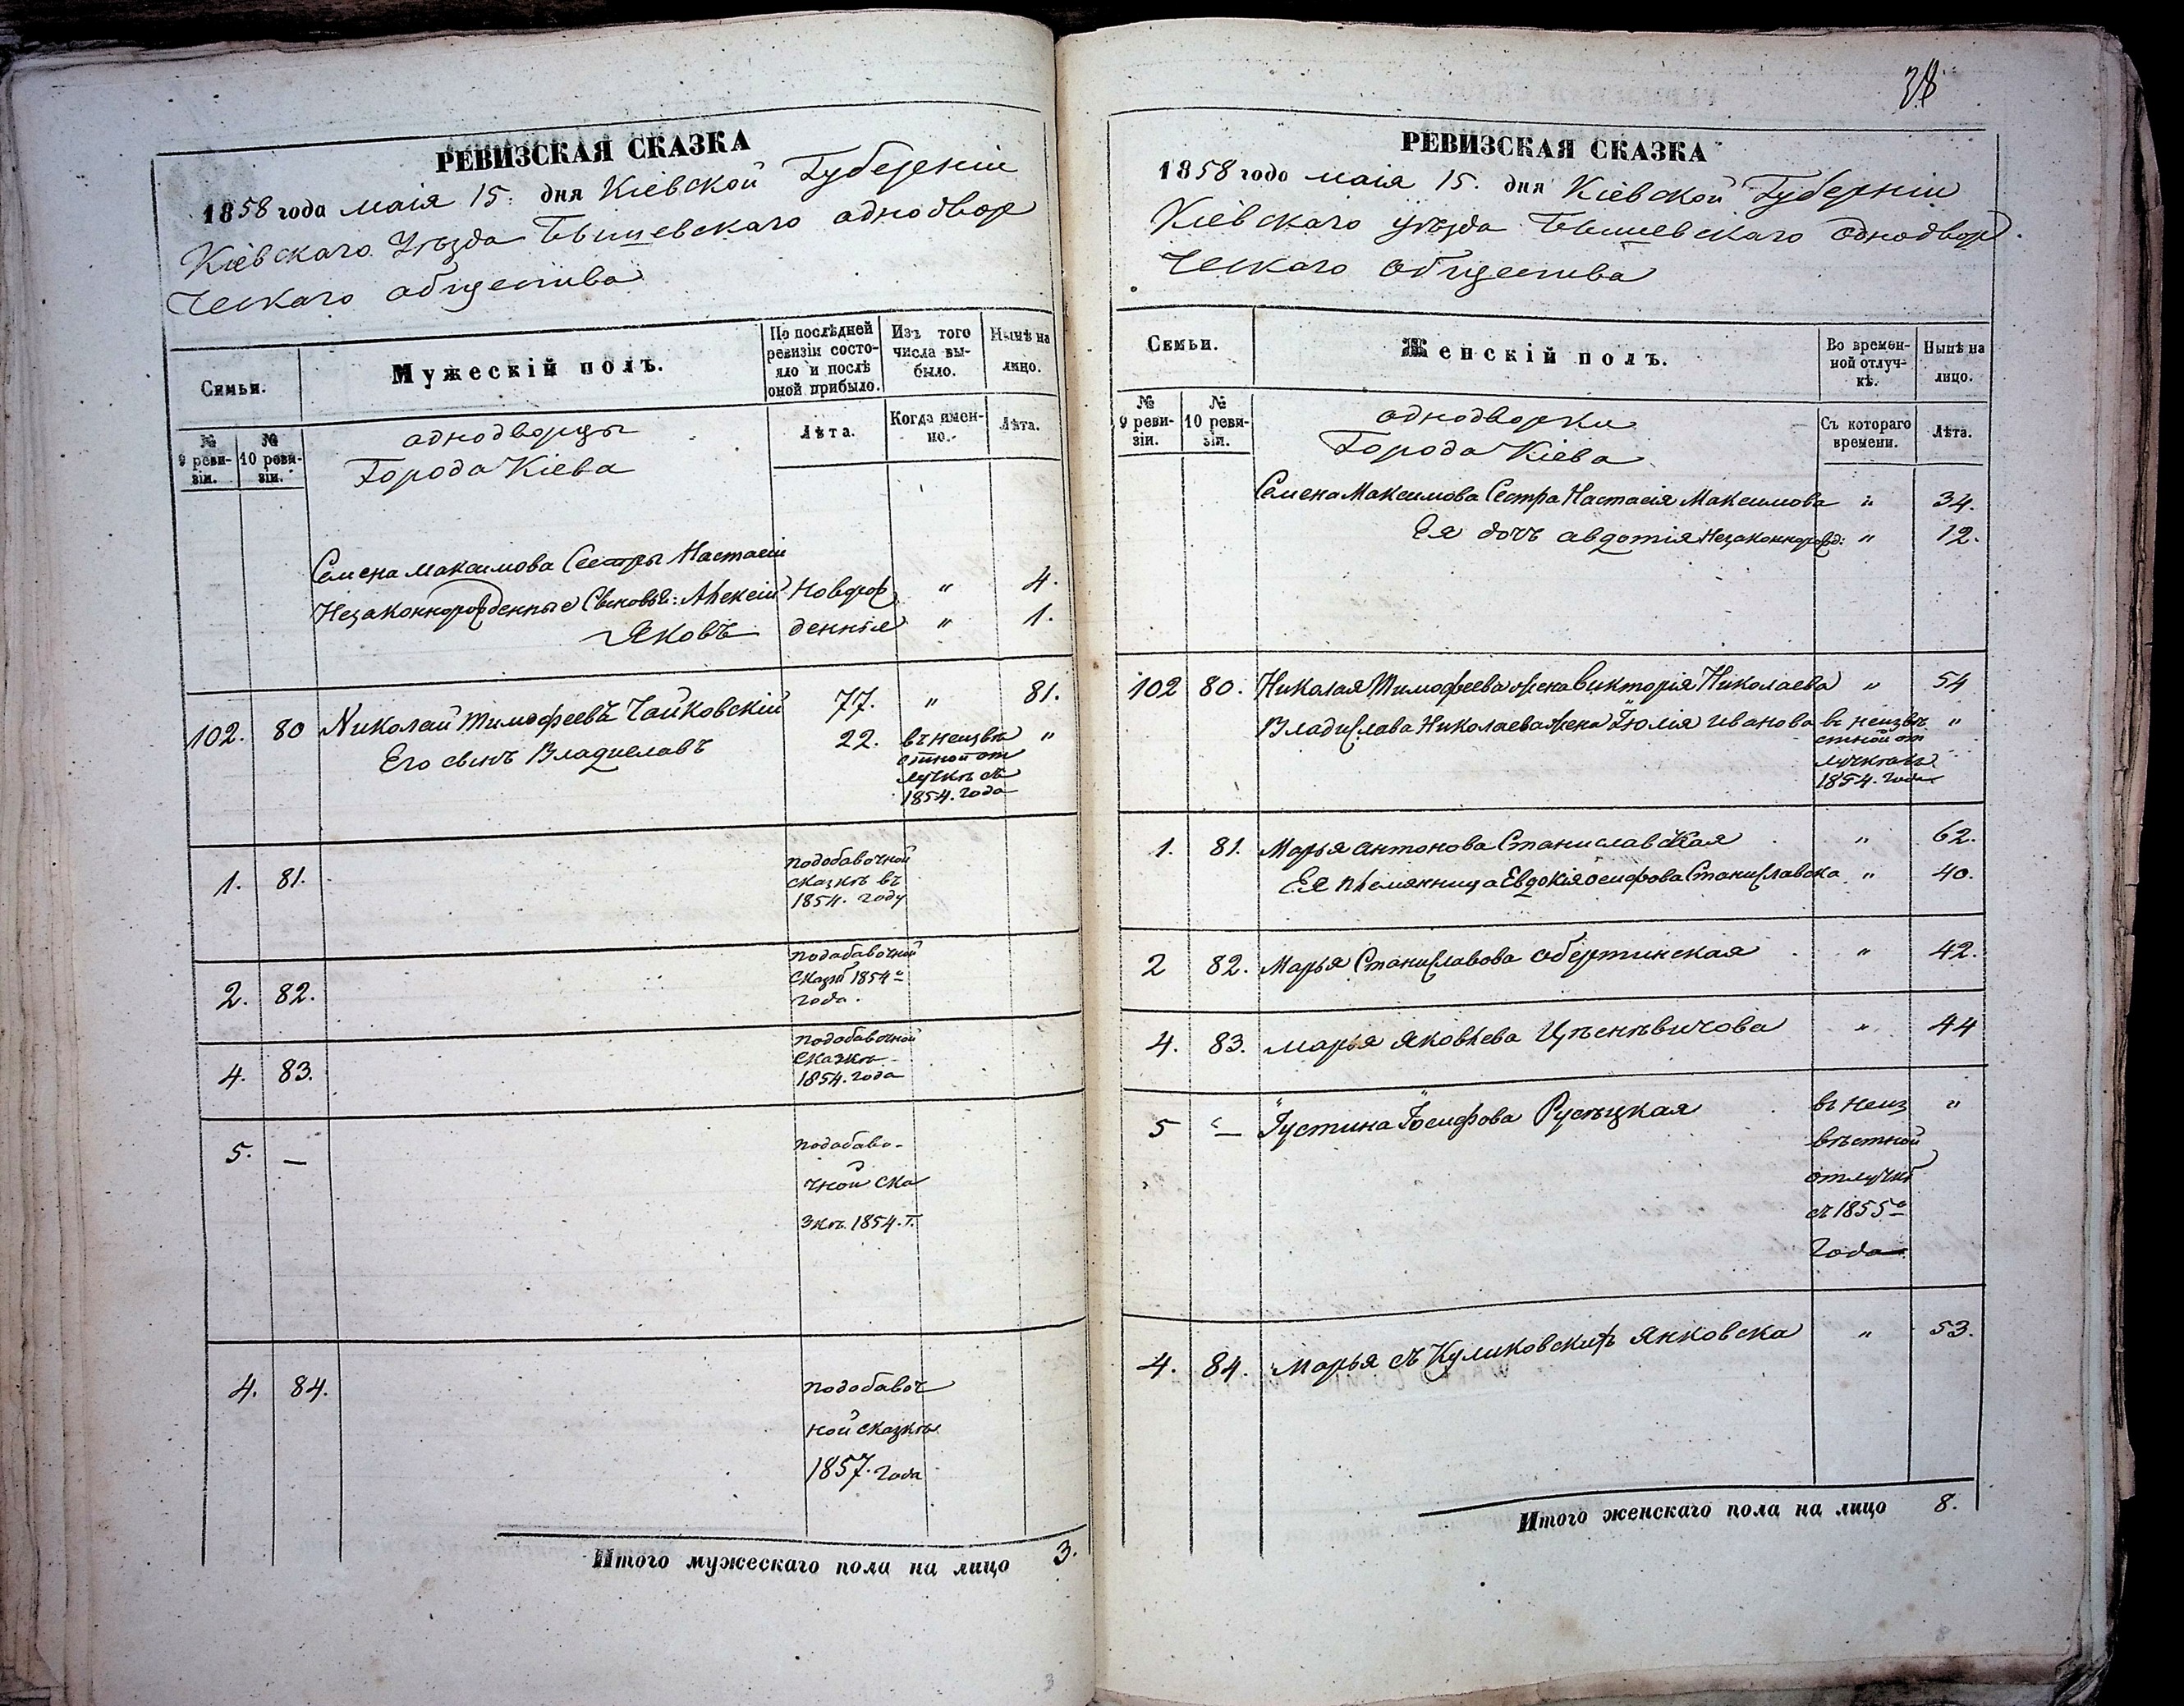 РЕВИЗСКАЯ СКАЗКА
1858 года маія 15. дня Кіевской Губерніи
Кіевскаго Уѣзда Бышевскаго однодвор
ческаго общества
Семьи.
Мужескій полъ.
По послѣдней ревизіи состояло и послѣ оной прибыло.
Изъ того числа выбыло.
Нынѣ на лицо.
№ 9 ревизіи.
№ 10 ревизіи.
однодворцы
Города Кіева
Лѣта.
Когда именно.
Лѣта.
Семена Максимова Сестры Настасіи
Незаконнорожденные Сыновья: Алексій Новорож " 4.
Яковъ денніе " 1.
102. 80 Николай Тимофеевъ Чайковскій 77. " 81.
Его сынъ Владиславъ 22. въ неизвѣ "
стной от
лучкѣ съ
1854. года
1. 81. подобавочной
сказкѣ въ
1854. году
2. 82. подобавочной
сказкѣ 1854го
года.
4. 83. подобавочной
сказкѣ
1854. года
5. — подобаво-
чной ска
зкѣ. 1854. г.
4. 84. подобавоч
ной сказкѣ
1857. года
Итого мужескаго пола на лицо 3.
3
38
РЕВИЗСКАЯ СКАЗКА
1858 года маія 15. дня Кіевской Губерніи
Кіевскаго уѣзда Бышевскаго однодвор.
ческаго общества
Семьи.
Женскій полъ.
Во временной отлучкѣ.
Нынѣ на лицо.
№ 9 ревизіи.
№ 10 ревизіи.
однодворки
Города Кіева
Съ котораго времени.
Лѣта.
Семена Максимова Сестра Настасія Максимова " 34.
Ея дочь авдотія Незаконнорожд: " 12.
102 80. Николая Тимофеева жена Викторія Николаева " 54
Владислава Николаева жена Іюлія иванова въ неизвѣ "
стной от
лучкѣ въ
1854. года
1. 81. Марья антонова Станиславская " 62.
Ея племянница Евдокія осифова Станиславска " 40.
2 82. Марья Станиславова обертинская " 42.
4. 83. марья Яковлева Цѣенѣвичова " 44
5 — Іустина Іосифова Русѣцкая въ неиз "
вѣстной
отлучкѣ
съ 1855го
года
4. 84. Марья съ Куликовскихъ Янковска " 53.
Итого женскаго пола на лицо 8.
8